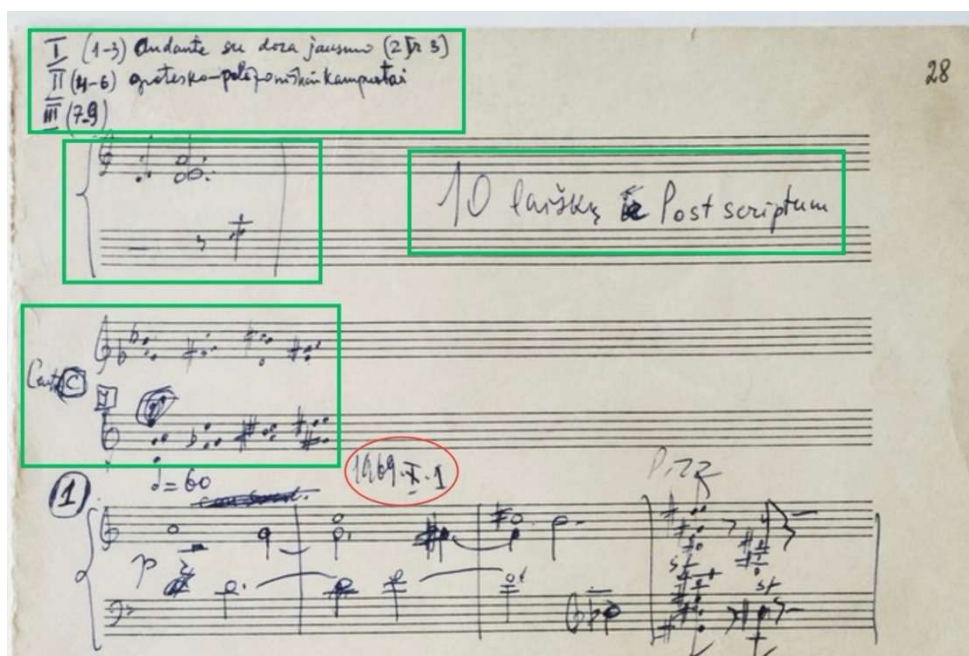 I (1-3) Andante su doza jausmo (2 3)
II (4-6) grotesko-polifoniškai
III (7-9)
28
10 laiškų Post scriptum
C
1
♩=60
1969.X.1
Pizz
p